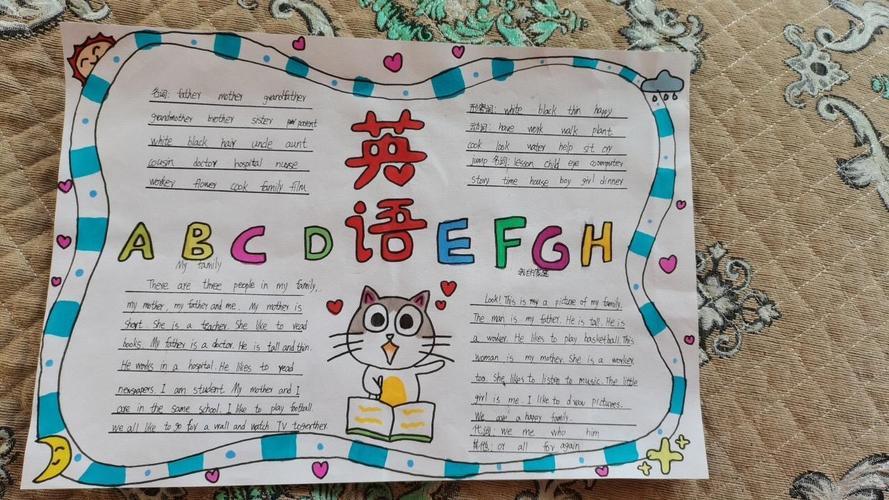 名词: father mother grandfather
grandmother brother sister parent
white black hair uncle aunt
cousin doctor hospital nurse
worker flower cook family film
形容词: white black thin happy
动词: have work walk plant
cook look water help sit cry
jump 名词: lesson child eye computer
story time house boy girl dinner
英语
A B C D E F G H
My family
There are three people in my family,
my mother, my father and me. My mother is
short. She is a teacher. She like to read
books. My father is a doctor. He is tall and thin.
He works in a hospital. He likes to read
newspapers. I am student. My mother and I
are in the same school. I like to play football.
We all like to go for a wall and watch TV togerther.
Look! This is my a picture of my family.
The man is my father. He is tall. He is
a worker. He likes to play basketball. This
woman is my mother. She is a worker
too. She likes to listen to music. The little
girl is me. I like to draw pictures.
We are a happy family.
代词: we me who him
其他: or all for again